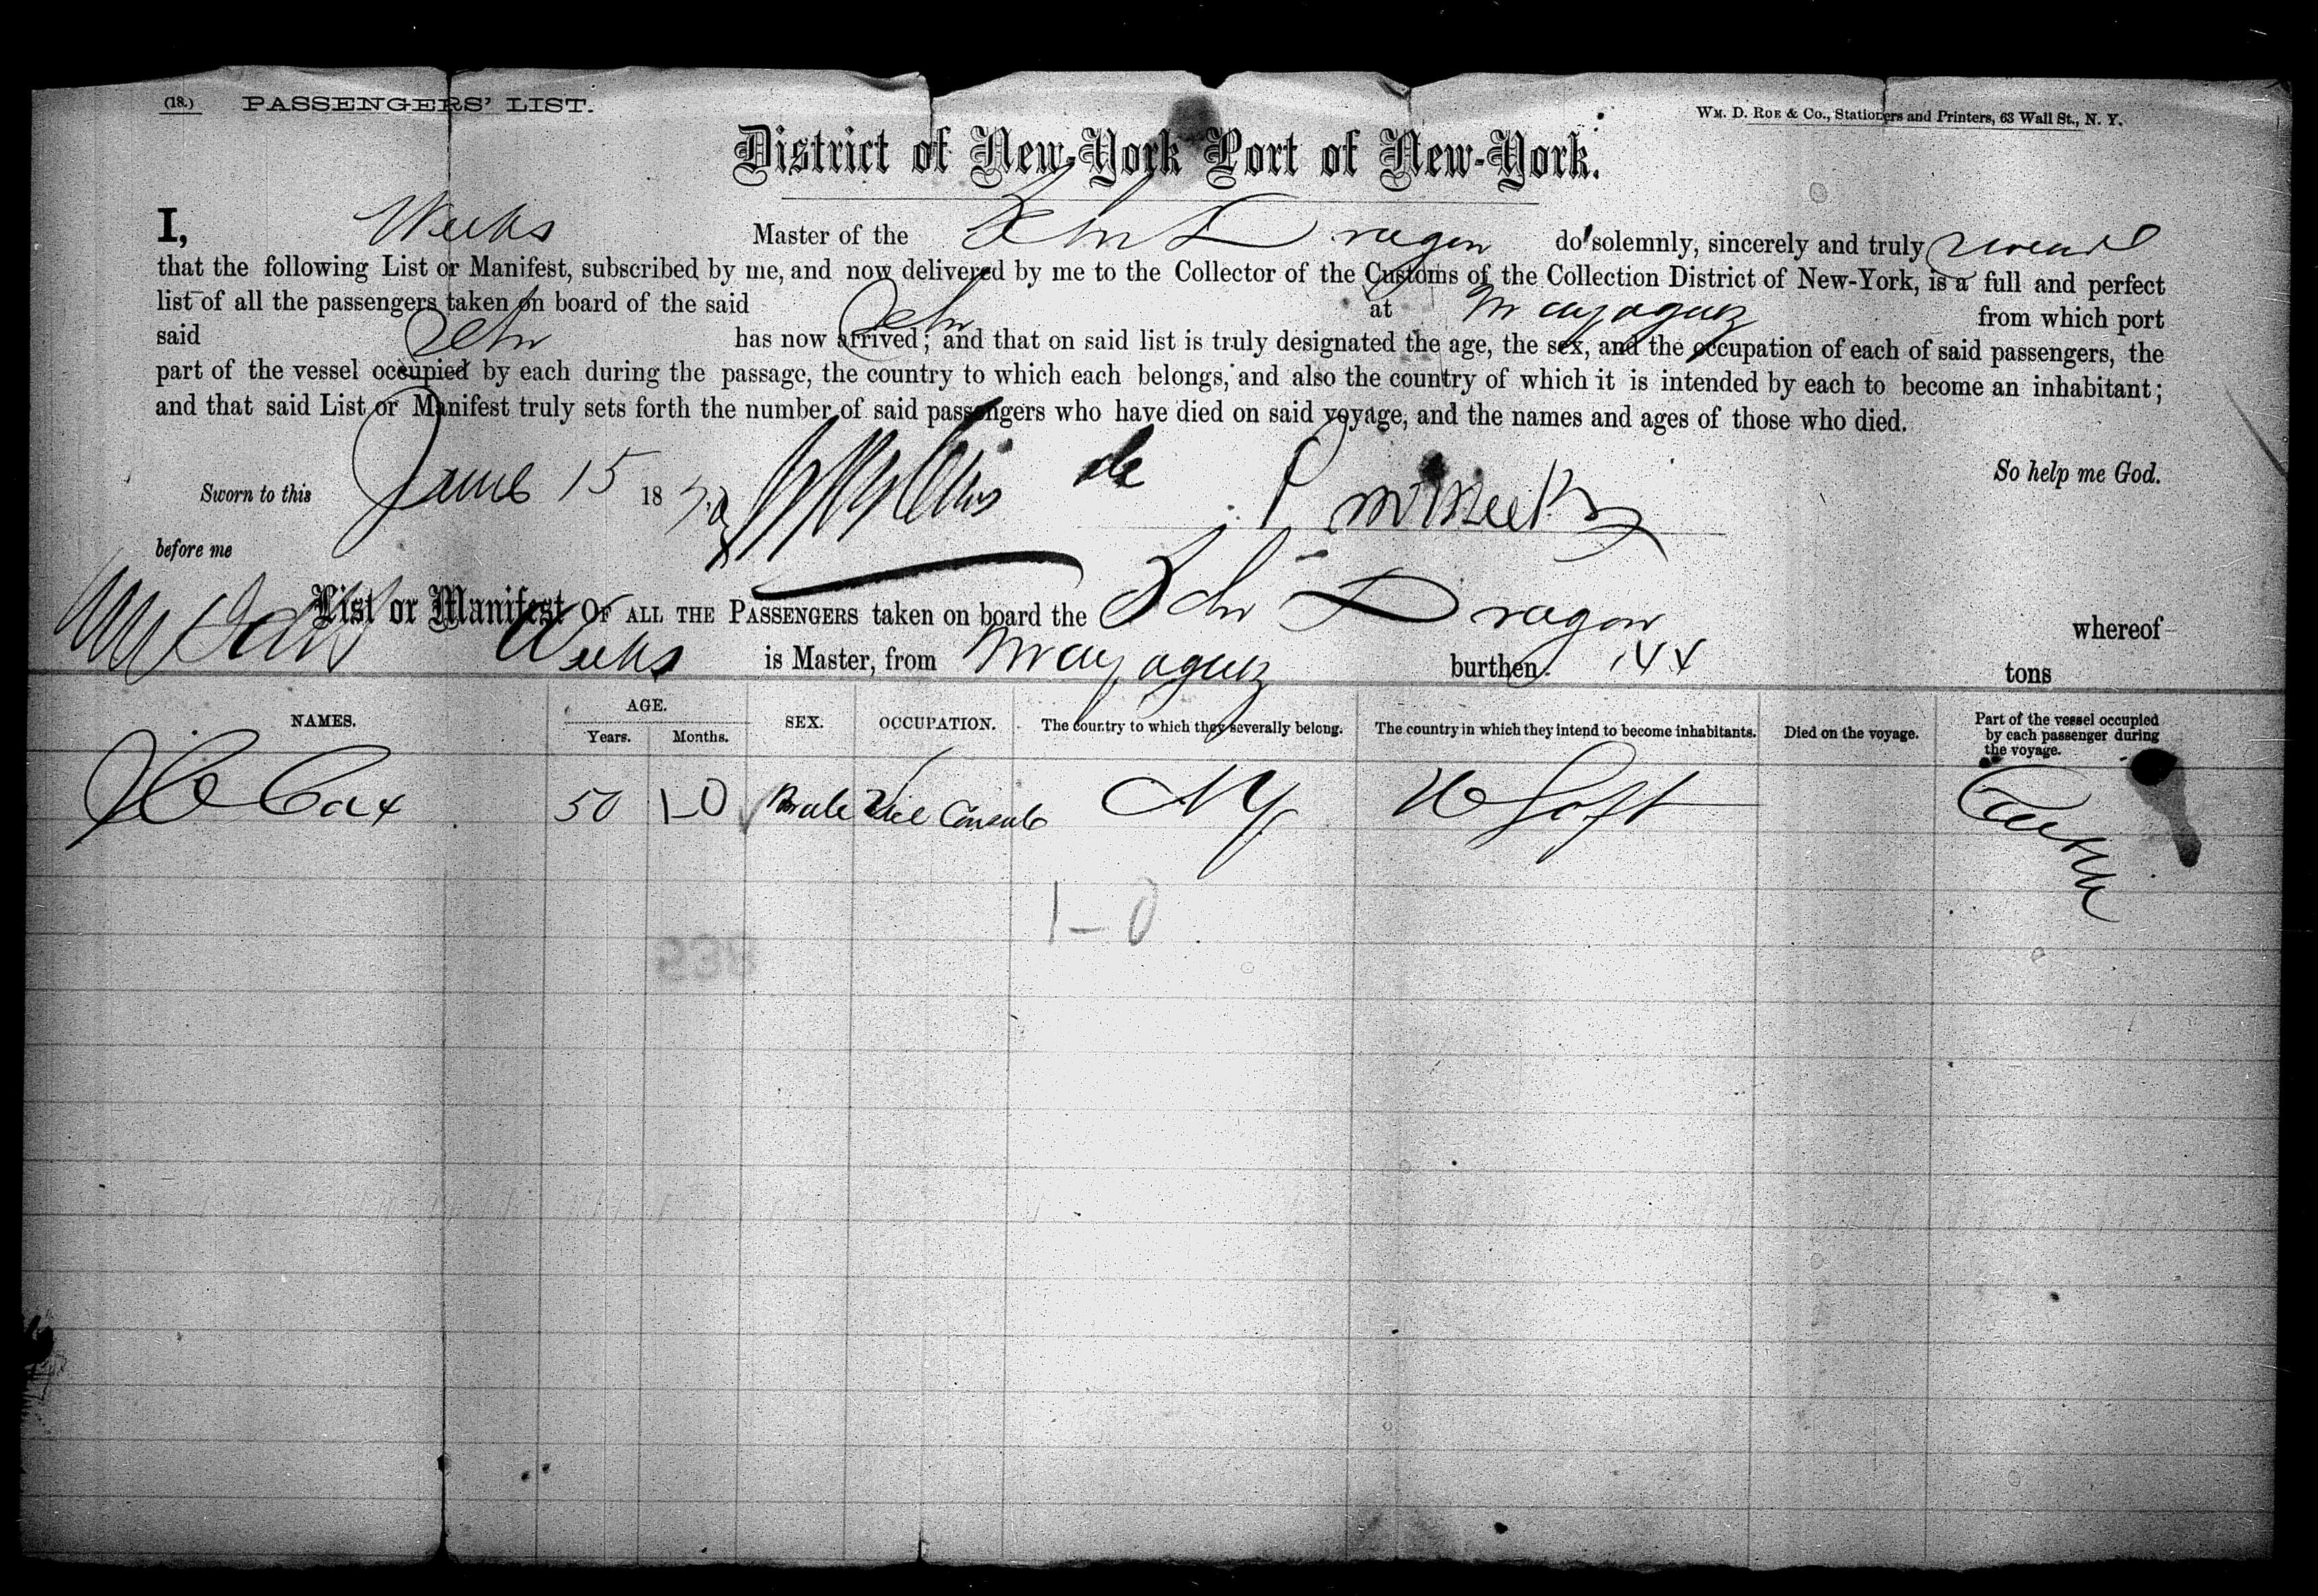 (18.) PASSENGERS' LIST.
WM. D. ROE & Co., Stationers and Printers, 63 Wall St., N. Y.
District of New-York Port of New-York.
I, Weeks Master of the Schr Dragon do solemnly, sincerely and truly swear
that the following List or Manifest, subscribed by me, and now delivered by me to the Collector of the Customs of the Collection District of New-York, is a full and perfect
list of all the passengers taken on board of the said Schr at Mayaguez from which port
said Schr has now arrived; and that on said list is truly designated the age, the sex, and the occupation of each of said passengers, the
part of the vessel occupied by each during the passage, the country to which each belongs, and also the country of which it is intended by each to become an inhabitant;
and that said List or Manifest truly sets forth the number of said passengers who have died on said voyage, and the names and ages of those who died.
So help me God.
Sworn to this June 15 18
before me
List or Manifest OF ALL THE PASSENGERS taken on board the Schr Dragon whereof
Weeks is Master, from Mayaguez burthen 144 tons
NAMES. AGE. Years. Months. SEX. OCCUPATION. The country to which they severally belong. The country in which they intend to become inhabitants. Died on the voyage. Part of the vessel occupied by each passenger during the voyage.
Cox 50 1-0 Male Vice Consul NY
1-0